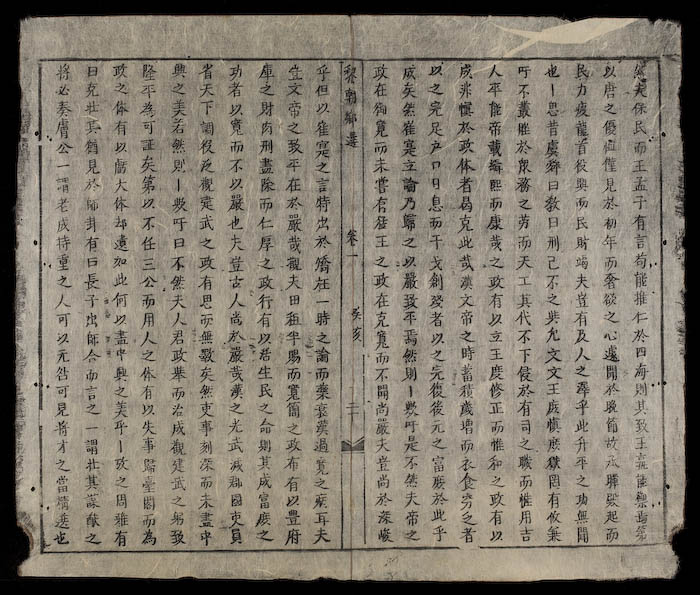 保民而王孟子有言苟能推仁於四海則其致王
以唐之優恤僅見於初年而奢欲之心遽開於晚節故承驛毀起而
民力疲龍首役興而民財竭夫豈有及人之澤乎此升平之功無聞
也一思昔虞辭曰敕曰刑己不之允文文王庶慎庶獄罔有攸兼
吁不叢脞於衆務之勞而天工其代不下侵於有司之職而惟用吉
人卒能帝載緝熙而康哉之政有以立王度修正而惟和之政有以
成非慎於政体者曷克此哉漢文帝之時蓄積歲增而衣食穷乏者
以之完足户口日息而干戈創殘者以之完復後元之富庶於此乎
成矣然崔寔立論乃歸之以嚴致平焉然則一数吁是不然夫帝之
政在御寬而未嘗有王之政在克寬而不聞尚嚴夫豈尚於深峻
黎朝鄉選 卷一 癸亥 二
乎但以崔寔之言特出於矯枉一時之論而藥衰漢過寬之癖耳夫
豈文帝之致平在於嚴哉觀夫田租半賜而寬簡之政布有以豊府
庫之財肉刑盡除而仁厚之政行有以居生民之命則其成富庶之
功者以寬而不以嚴也夫豈古人尚於嚴哉漢之光武減郡國吏員
省天下調役及觀建武之政有思而無斁矣然吏事刻深而未盡中
興之美若然則一数吁曰不然夫人君政舉而治成觀建武之躬致
隆平為可証矣第以不任三公而用人之体有以失事歸臺閣而為
政之体有以虧大体却遠如此何以盡中興之美乎一致之周雅有
曰克壮其猶見於師卦有曰長子出師合而言之一謂壮其謀猷之
將必奏膚公一謂老成持重之人可以无咎可見將才之當精選也